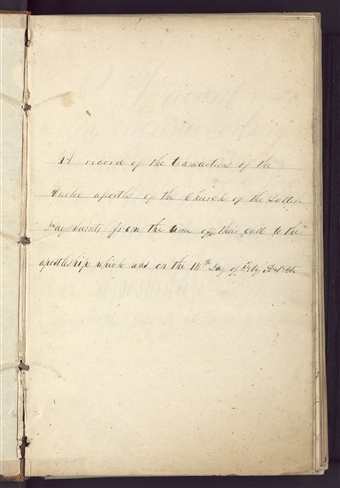 A record of the transactions of the
Twelve apostles of the Church of the Latter
Day Saints from the time of their call to the
apostleship which was on the 14th Day of Feby. AD 1835